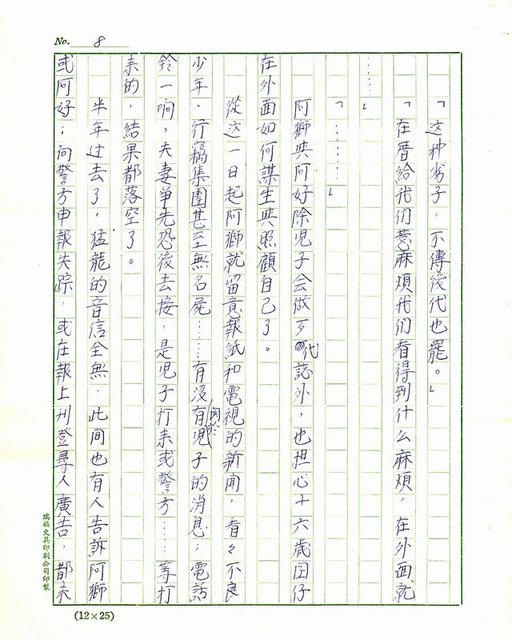 No. 8
「这种劣子，不傳後代也罷。」
「在厝給我们惹麻煩我们看得到什么麻煩，在外面就
……」
「……」
阿獅與阿好除児子会做歹代誌外，也担心十六歲囝仔
在外面如何謀生與照顧自己了。
從这一日起阿獅就留意報紙和電視的新闻，看々不良
少年、行竊集團甚至無名屍……有没有児子的消息；電話
鈴一响，夫妻爭先恐後去接，是児子打来或警方……等打
来的，結果都落空了。
半年过去了，猛龍的音信全無，此间也有人告訴阿獅
或阿好；向警方申報失踪，或在報上刊登尋人廣告，都未
(12×25)
瑞福文具印刷公司印製